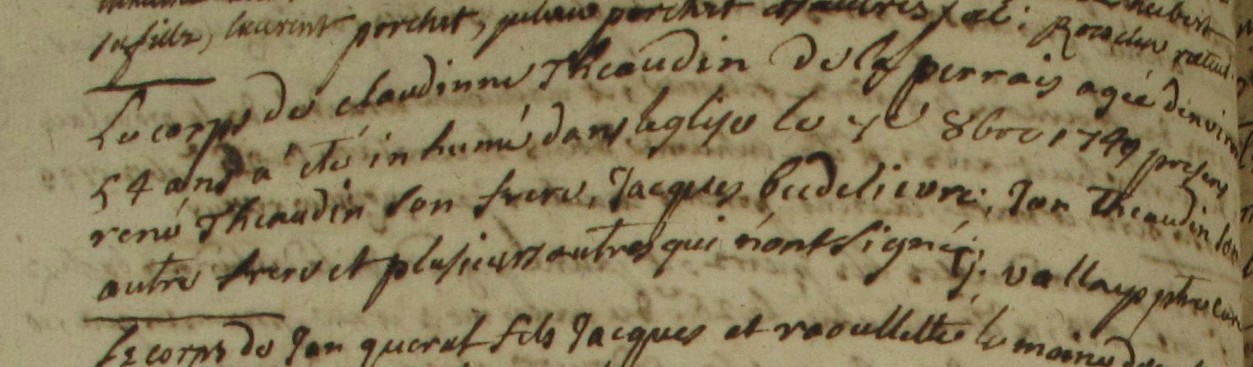 sa fille, laurent porchet, julien porchet et autres
Le corps de claudinne Theaudin De la perrais agée denviron
54 ans a été inhumé dans leglise le 7e 8bre 1749 presens
rené Theaudin son frere, Jacques beedelievre, Jan Theaudin son
autre frere et plusieurs autres qui n'ont signé. J. vallays ptre curé
Le corps de Jan querat fils Jacques et raoullette le moine